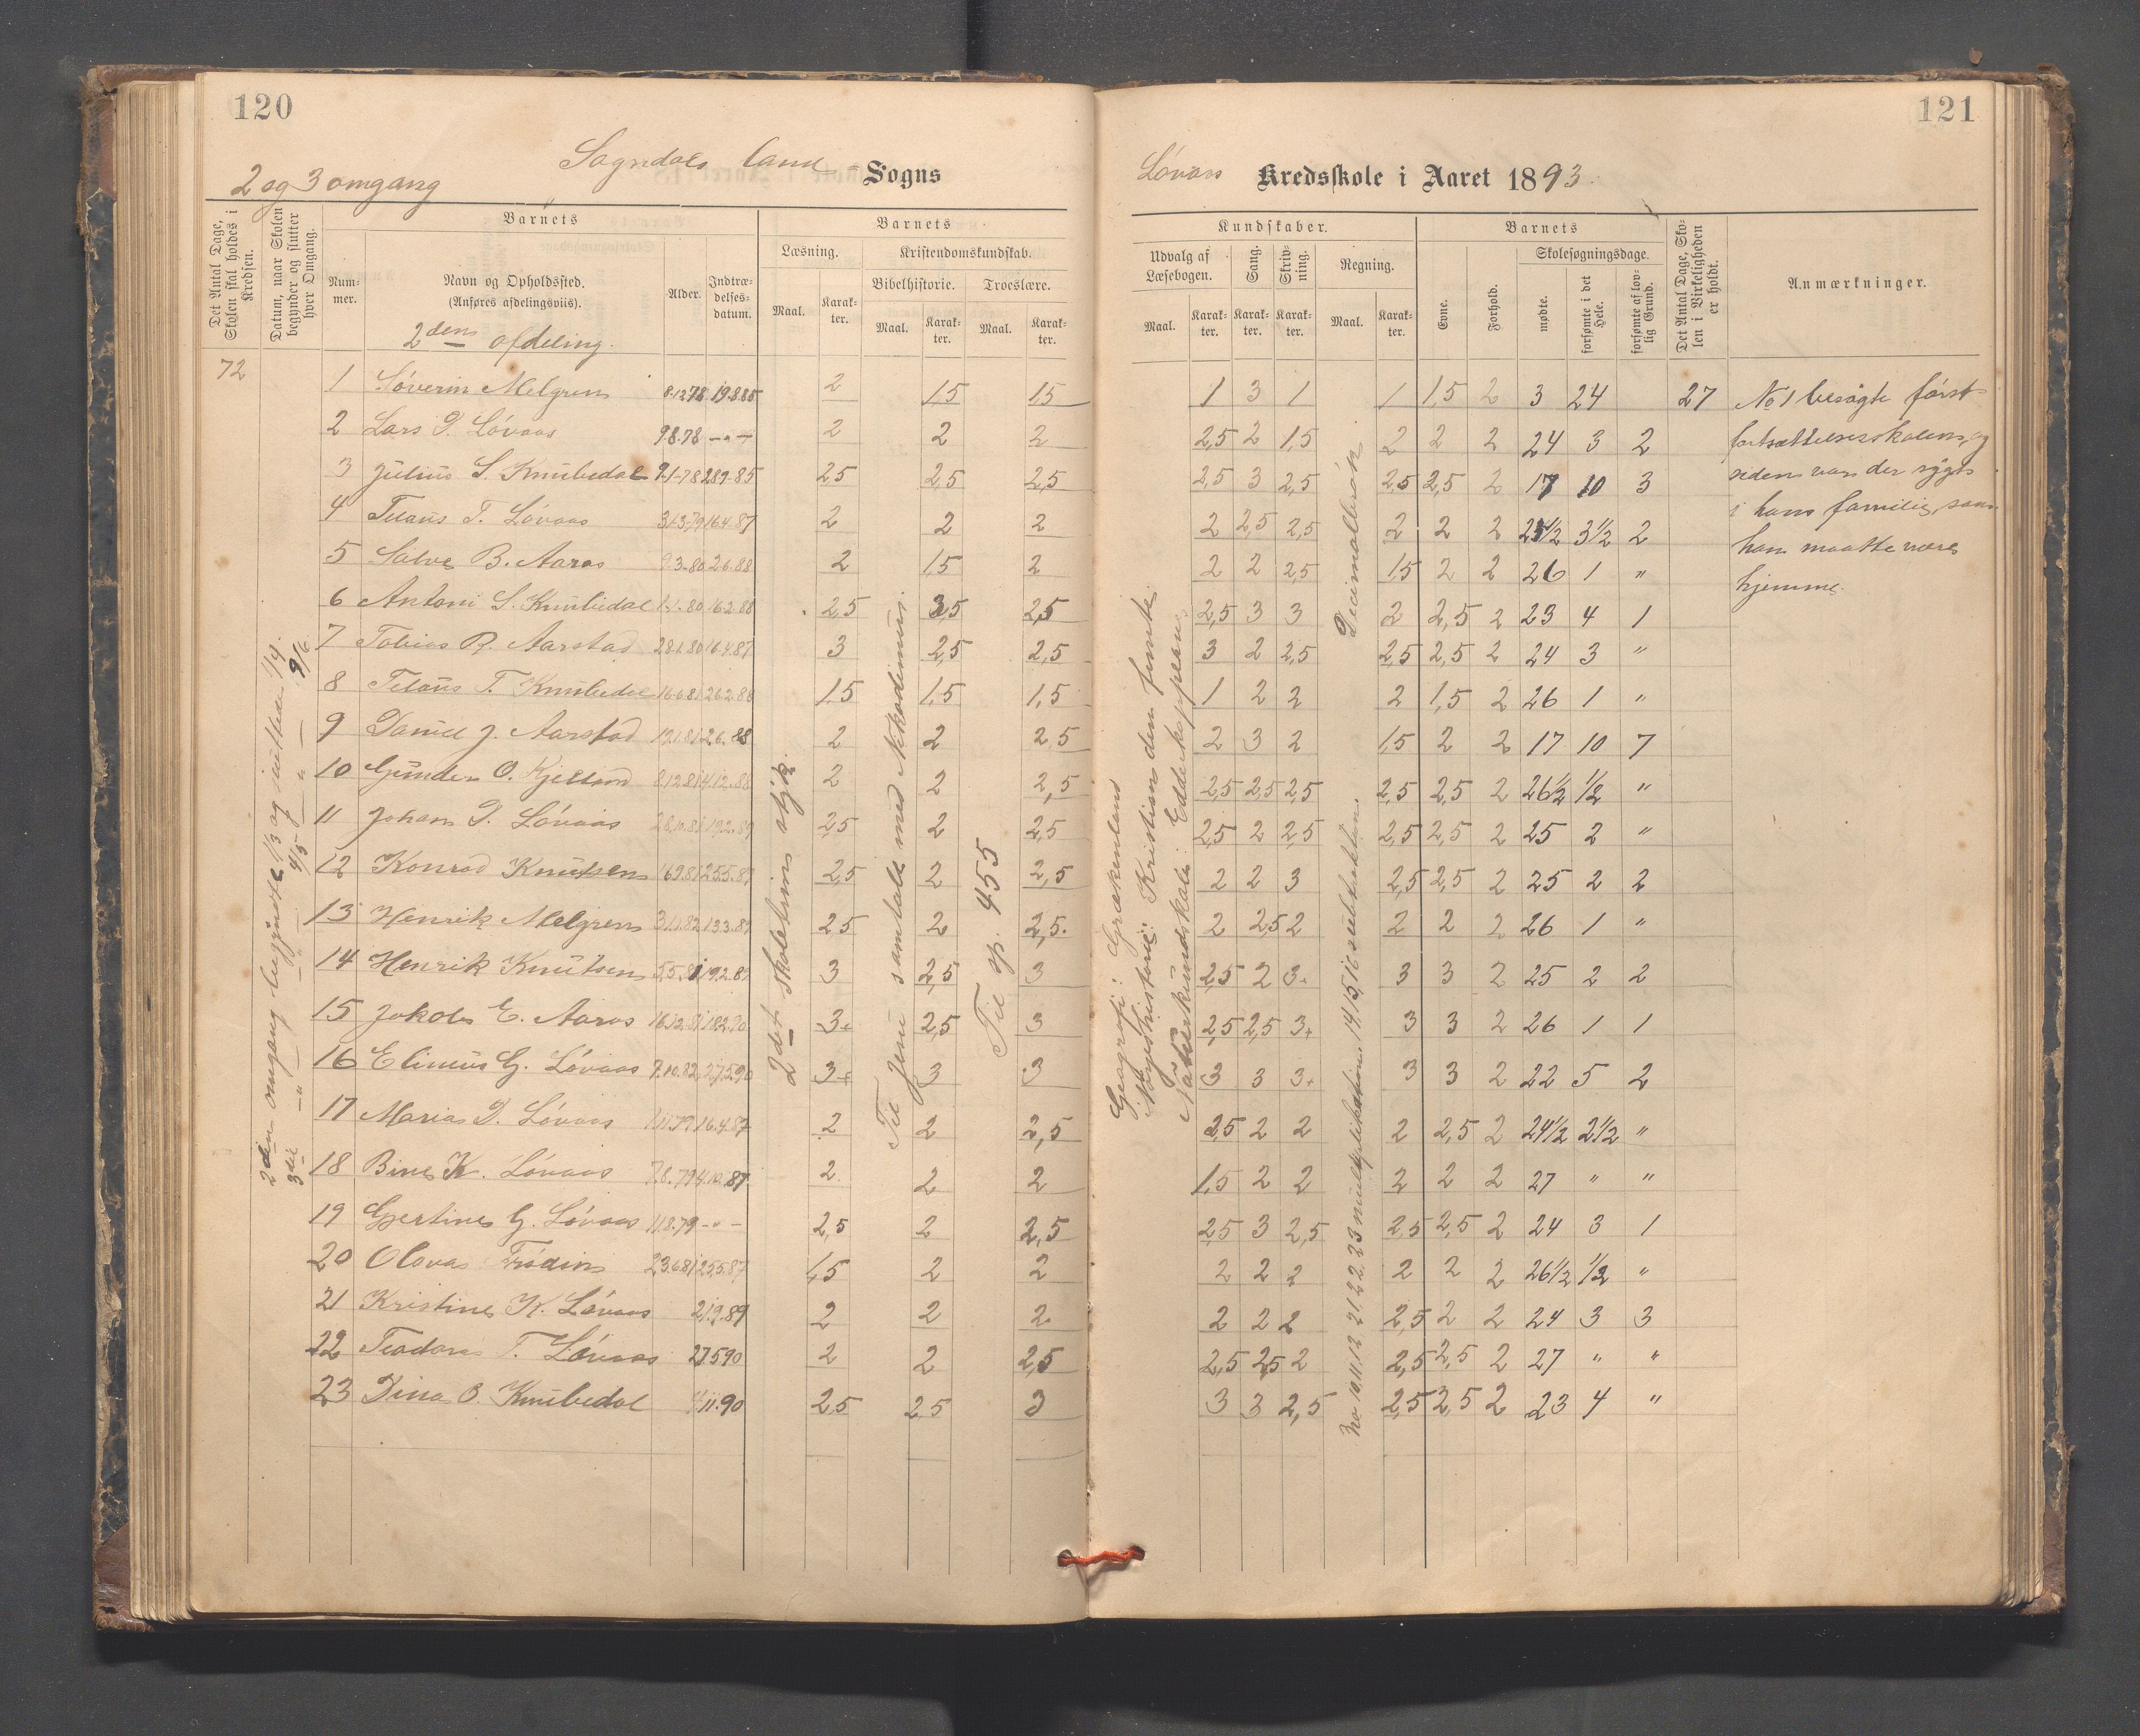 120
2 og 3 omgang
Sogndals land Sogns
Det Antal Dage, Skolen skal holdes i Kredsen.
Datum, naar Skolen begynder og slutter hver Omgang.
Barnets
Nummer.
Navn og Opholdssted.
(Anføres afdelingsviis).
Alder.
Indtrædelsesdatum.
Barnets
Læsning.
Kristendomskundskab.
Bibelhistorie.
Troeslære.
Maal.
Karakter.
Maal.
Karakter.
Maal.
Karakter.
2den afdeling.
72
1 Søverin Melgren 8.12.78 19.8.85 2 1,5 1,5
2 Lars P. Lövaas 9.8.78 -"- 2 2 2
3 Julius S. Knubedal 9-1-78 28.9-85 2,5 2,5 2,5
4 Titaus T. Lövaas 31.3.79 16.4.87 2 2 2
5 Salve B. Aaros 9.3.80 2.6.88 2 1,5 2
6 Antoni S. Knubedal 1.1.80 16.2.88 2,5 2,5 2,5
7 Tobias R. Aarstad 28.1.80 16.4.87 3 2,5 2,5
8 Titaus T. Knubedal 16.6.81 26.2.88 1,5 1,5 1,5
9 Daniel J. Aarstad 19.1.81 2.6.88 2 2 2,5
10 Gunder O. Kjelland 8.12.81 4.12.88 2 2 2,5
11 Johan P. Lövaas 28.10.81 19.2.89 2,5 2 2,5
12 Konrad Knutsen 16.9.81 25.5.89 2,5 2 2,5
13 Henrik Melgren 31.1.82 13.3.89 2,5 2 2,5
14 Henrik Knutsen 5.5.81 19.2.89 3 2,5 3
15 Jakob E. Aaros 16.12.81 18.2.90 3+ 2,5 3
16 Elinius G. Lövaas 7.10.82 27.5.90 3+ 3 3
17 Maria P. Lövaas 1.11.79 16.4.87 2 2 2,5
18 Bine K. Lövaas 7.8.79 4.10.87 2 2 2
19 Gjertine G. Lövaas 11.8.79 -"- 2,5 2 2,5
20 Olava Frödin 23.6.81 25.5.87 1,5 2 2
21 Kristine K. Lövaas 21.9.89 2 2 2
22 Teodora T. Lövaas 27.5.90 2 2 2,5
23 Dina O. Knubedal 4.11.90 2,5 2,5 3
2den omgang begyndte 1/3 og sluttede 1/4.
3die -"- -"- 4/5 -"- 9/6
2det skoletrins stykk.
Til Jesu samtale med Nikodemus.
Til sp. 455
121
Lövaas Kredsskole i Aaret 1893
Kundskaber.
Barnets
Udvalg af Læsebogen.
Sang.
Skrivning.
Regning.
Maal.
Karakter.
Karakter.
Karakter.
Maal.
Karakter.
Evne.
Forhold.
Skolesøgningsdage.
mødte.
forsømte i det Hele.
forsømte af lovlig Grund.
Det Antal Dage, Skolen i Virkeligheden er holdt.
Anmærkninger.
1 3 1 1 1,5 2 3 24 27
2,5 2 1,5 2 2 2 24 3 2
2,5 3 2,5 2,5 2,5 2 17 10 3
2 2,5 2,5 2 2 2 23 1/2 3 1/2 2
2 2 2,5 1,5 2 2 26 1 "
2,5 3 3 2 2,5 2 23 4 1
3 2 2,5 2,5 2,5 2 24 3 "
1 2 2 2 1,5 2 26 1 "
2 3 2 1,5 2 2 17 10 7
2,5 2,5 2,5 2,5 2,5 2 26 1/2 1/2 "
2,5 2 2,5 2,5 2,5 2 25 2 "
2 2 3 2,5 2,5 2 25 2 2
2 2,5 2 2 2 2 26 1 "
2,5 2 3+ 3 3 2 25 2 2
2,5 2,5 3+ 3 3 2 26 1 1
3 3 3+ 3 3 2 22 5 2
2,5 2 2 2 2,5 2 24 1/2 2 1/2 "
1,5 2 2 2 2 2 27 " "
2,5 3 2,5 2,5 2,5 2 24 3 1
2 2 2 2 2 2 26 1/2 1/2 "
2 2 2 2,5 2 2 24 3 3
2,5 2,5 2 2,5 2,5 2 27 " "
3 3 2,5 2,5 2,5 2 23 4 "
Geografi: Grækenland
Norgeshistorie: Kristian den femte
Naturkundskab: Edderkoppene.
Decimalbrök.
No 10, 11, 12, 21, 22, 23 multiplikation. 14, 15, 16 subtraktion.
No 1 besögte först
fortsættelsesskolen, og
siden var der sygt
i hans familie, som
han maatte være
hjemme.